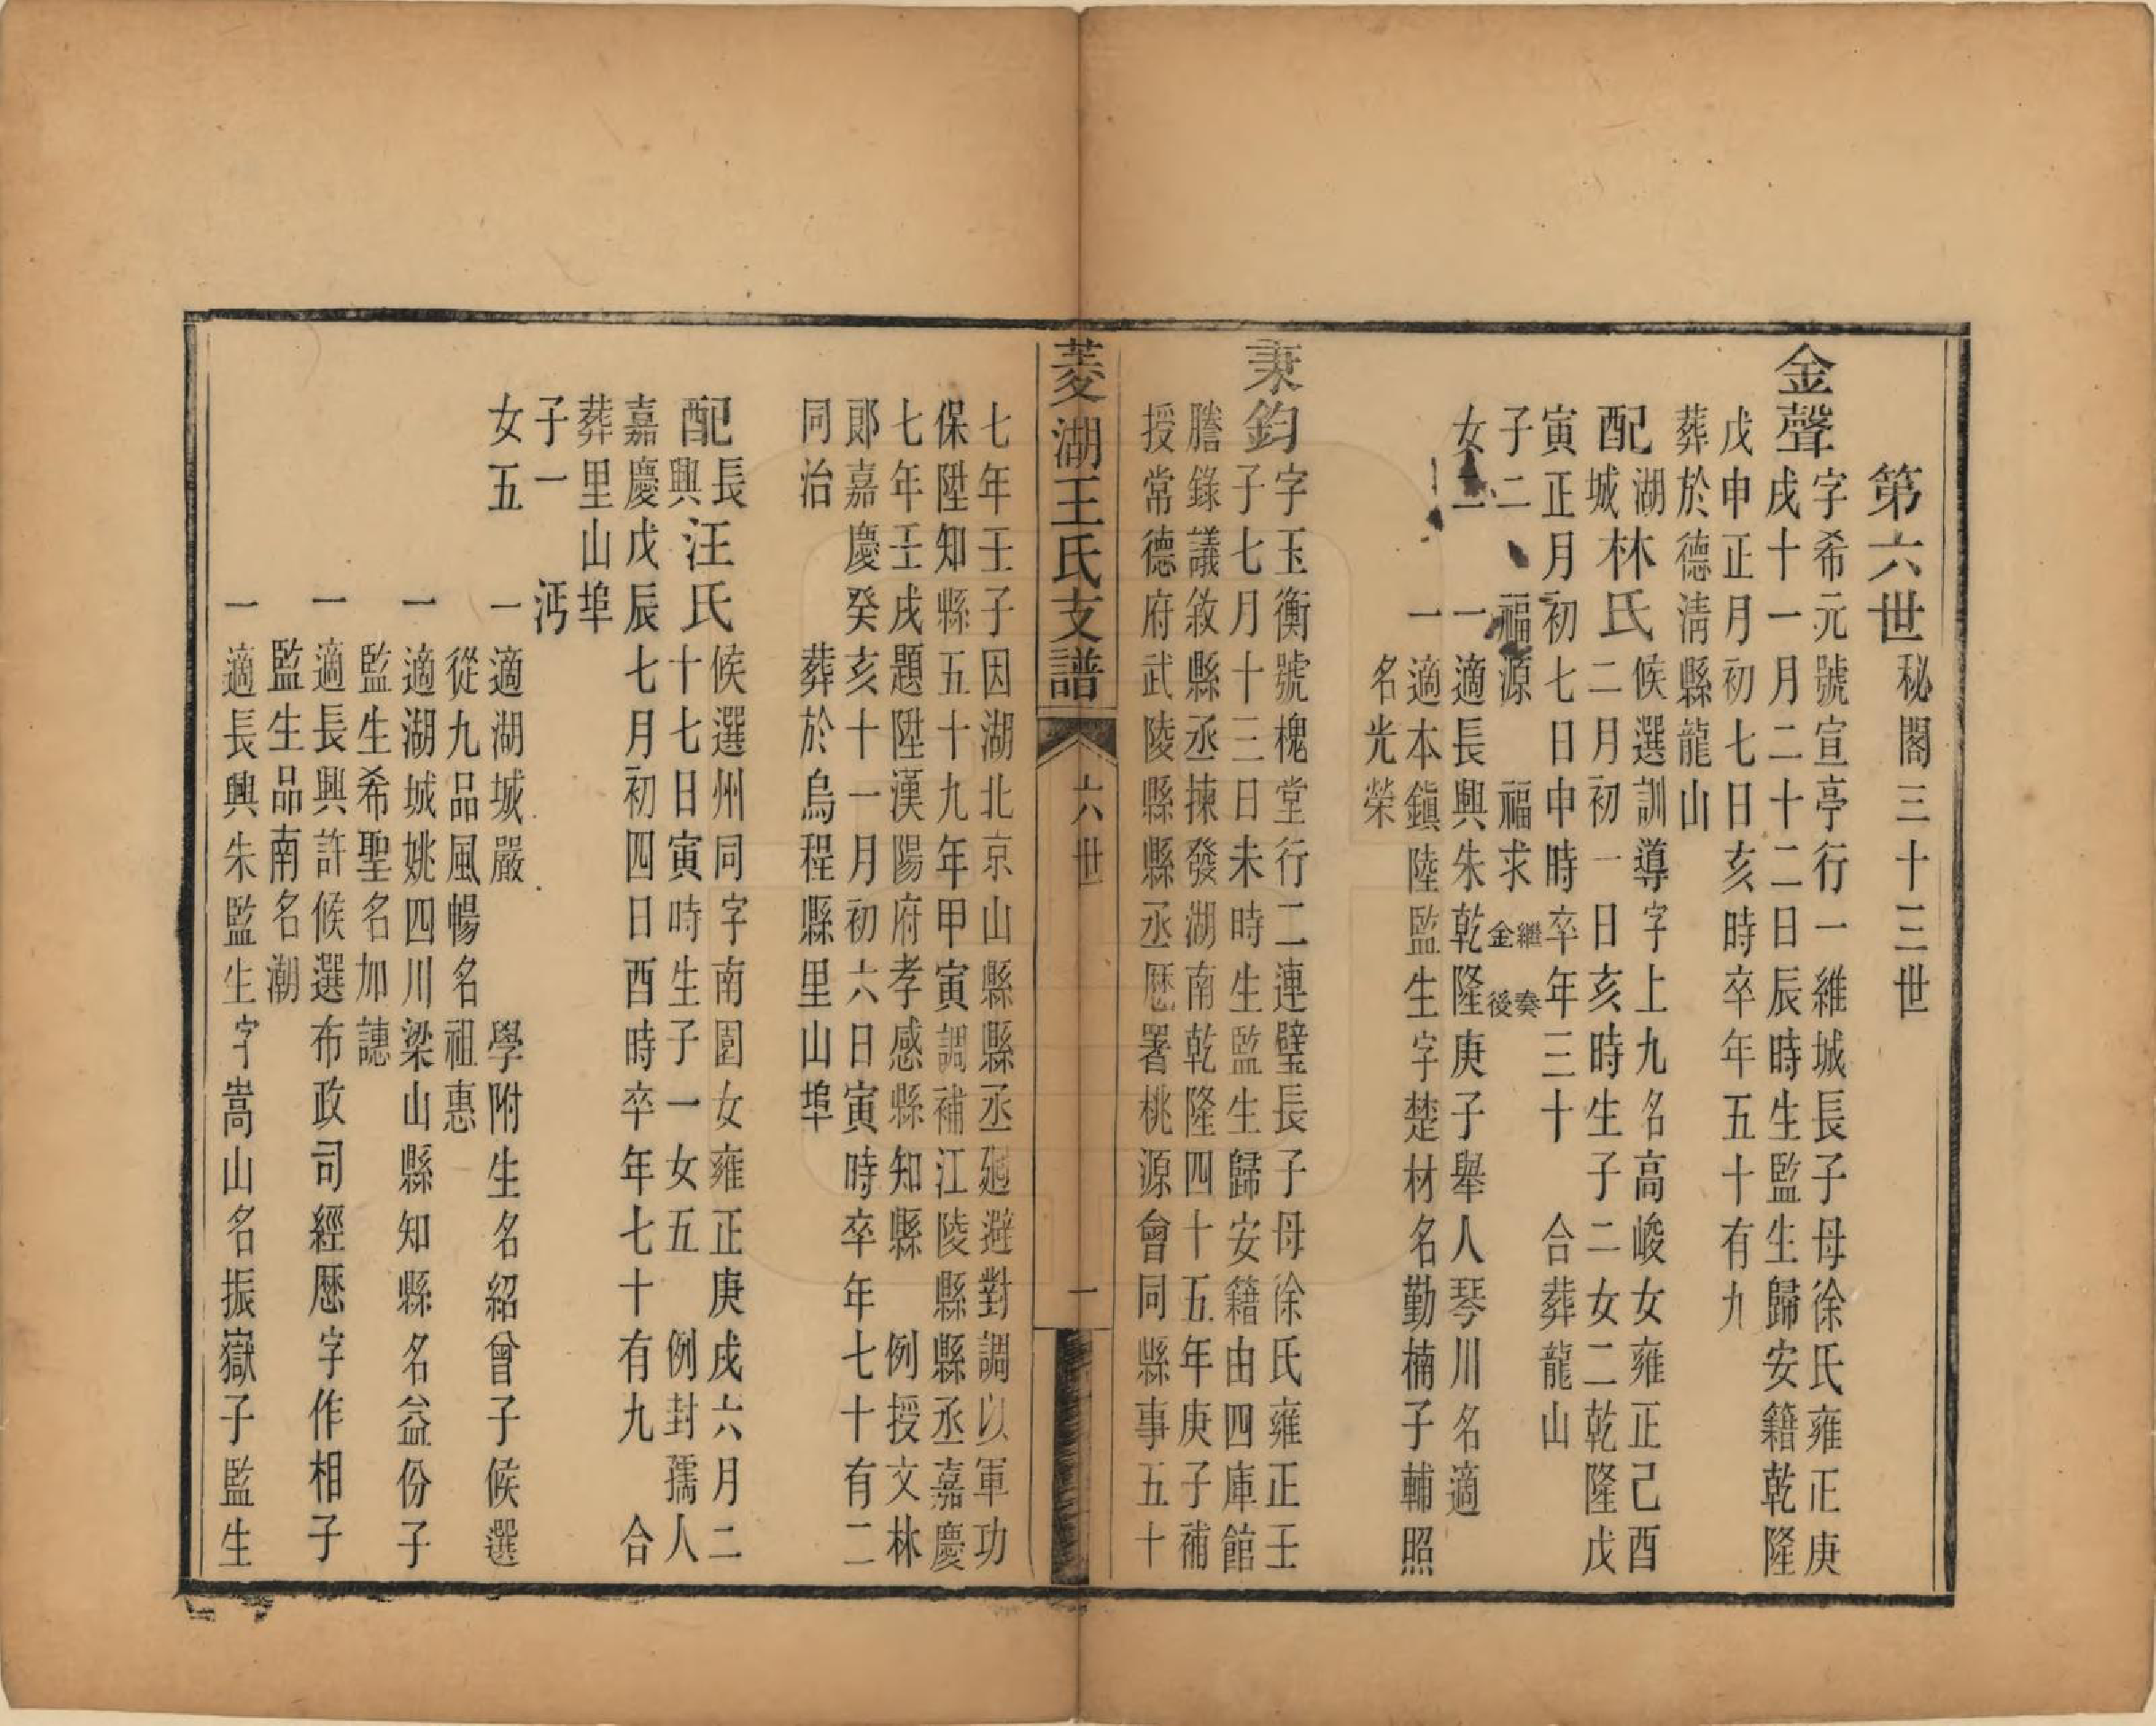 第六世 秘閣三十三世
金聲 字希元號宣亭行一維城長子母徐氏雍正庚
戌十一月二十二日辰時生監生歸安籍乾隆
戊申正月初七日亥時卒年五十有九
葬於德清縣龍山
配湖城林氏 候選訓導字上九名高峻女雍正己酉
二月初一日亥時生子二女二乾隆戊
寅正月初七日申時卒年三十 合葬龍山
子二 福源 福求繼奏金後
女二 一適長興朱乾隆庚子舉人琴川名適
一適本鎮陸監生字楚材名勤楠子輔照
名光榮
秉鈞 字玉衡號槐堂行二連璧長子母徐氏雍正壬
子七月十三日未時生監生歸安籍由四庫館
謄錄議敘縣丞揀發湖南乾隆四十五年庚子補
授常德府武陵縣縣丞歷署桃源會同縣事五十
菱湖王氏支譜 六世 一
七年壬子因湖北京山縣縣丞廻避對調以軍功
保陞知縣五十九年甲寅調補江陵縣縣丞嘉慶
七年壬戌題陞漢陽府孝感縣知縣 例授文林
郞嘉慶癸亥十一月初六日寅時卒年七十有二
同治 葬於烏程縣里山埠
配長興汪氏 候選州同字南園女雍正庚戌六月二
十七日寅時生子一女五 例封孺人
嘉慶戊辰七月初四日酉時卒年七十有九 合
葬里山埠
子一 沔
女五 一適湖城嚴 學附生名紹曾子候選
從九品風暢名祖惠
一適湖城姚四川梁山縣知縣名益份子
監生希聖名加譓
一適長興許候選布政司經歷字作相子
監生品南名潮
一適長興朱監生字嵩山名振嶽子監生